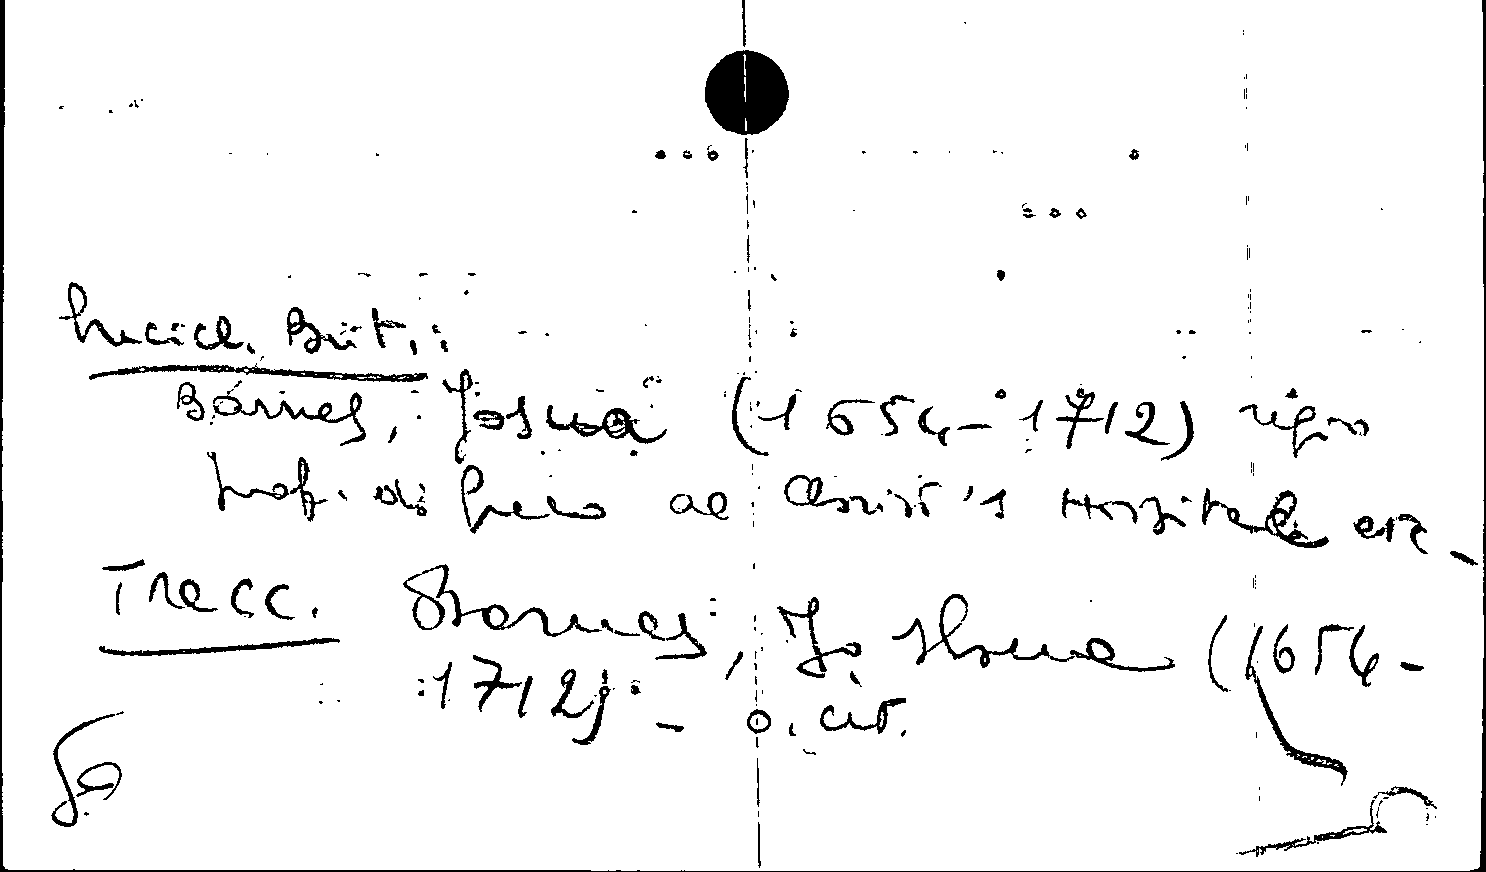 Encicl. Brit.:
Barnes, Josua (1654-1712)
prof. di greco al Christ's Hospital ecc -
Trecc. Barnes, Joshua (1654-
1712). - o. cit.